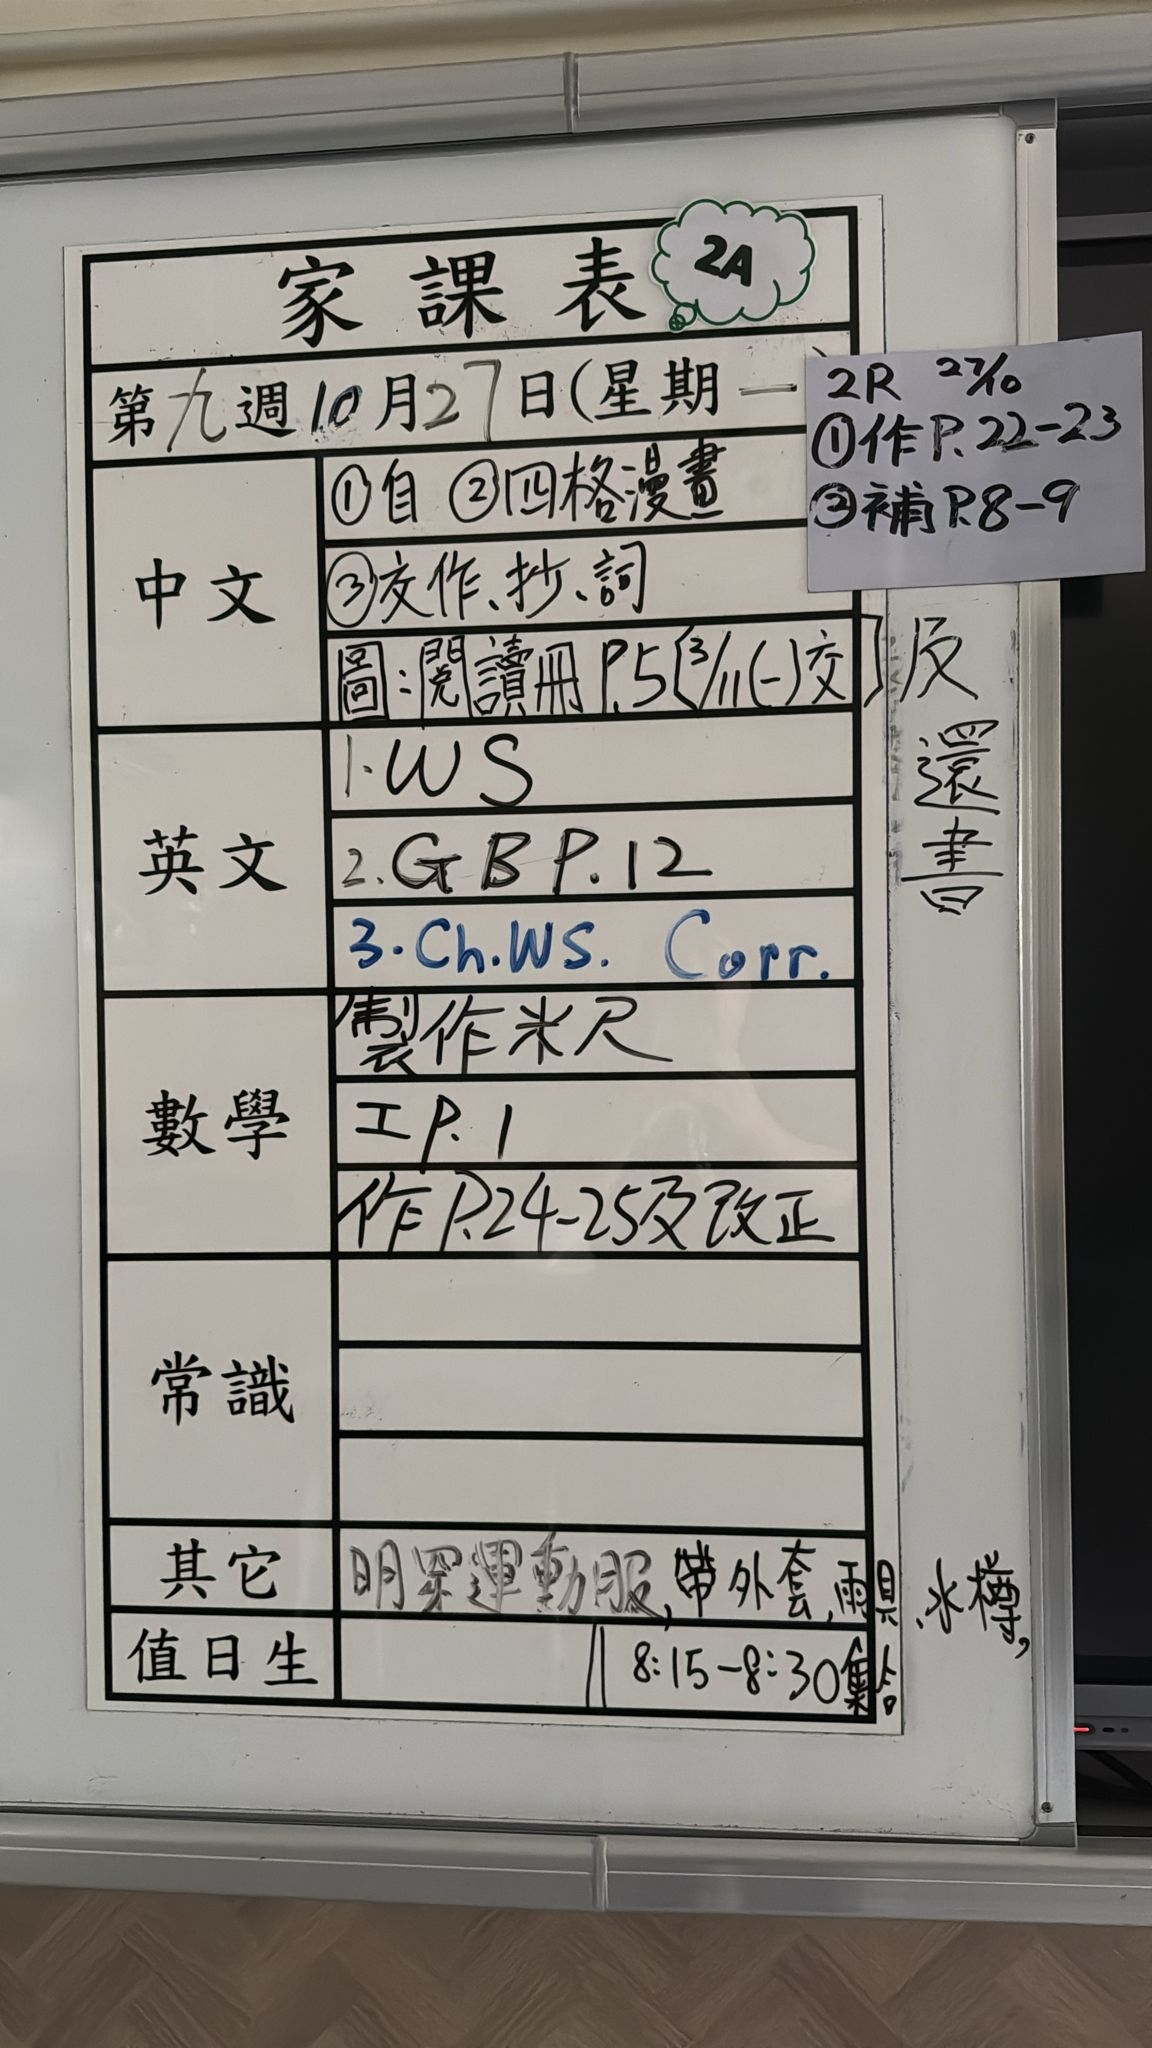 家課表
2A
第九週10月27日(星期一
2R 27/10
①作P.22-23
②補P.8-9
中文
①自 ②四格漫畫
③交作、抄、詞
圖:閱讀冊P.5[3/11(一)交]及還書
英文
1.WS
2.GBP.12
3.Ch.WS. Corr.
數學
製作米尺
工P.1
作P.24-25及改正
常識
其它
明深運動服,帶外套,雨具,水樽,
值日生
8:15-8:30集合